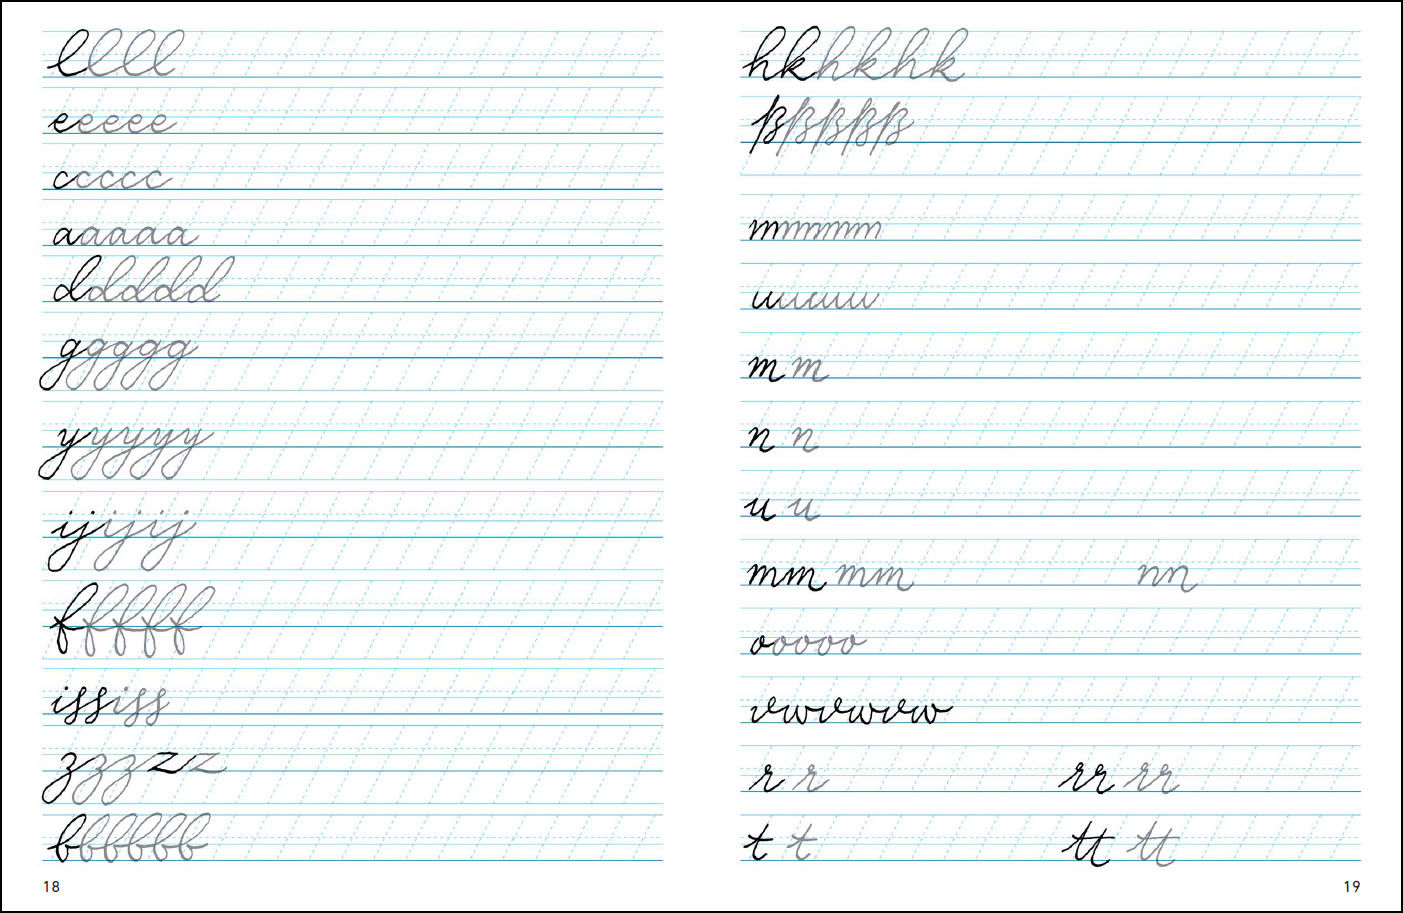 llll
eeeee
ccccc
aaaaa
ddddd
ggggg
yyyyy
ijijij
fffff
ississ
zzzzz
bbbbbb
18
hkhkhk
ßßßßß
mmmmm
uuuuu
m m
n n
u u
mm mm nn
ooooo
vwvwvw
r r rr rr
t t tt tt
19